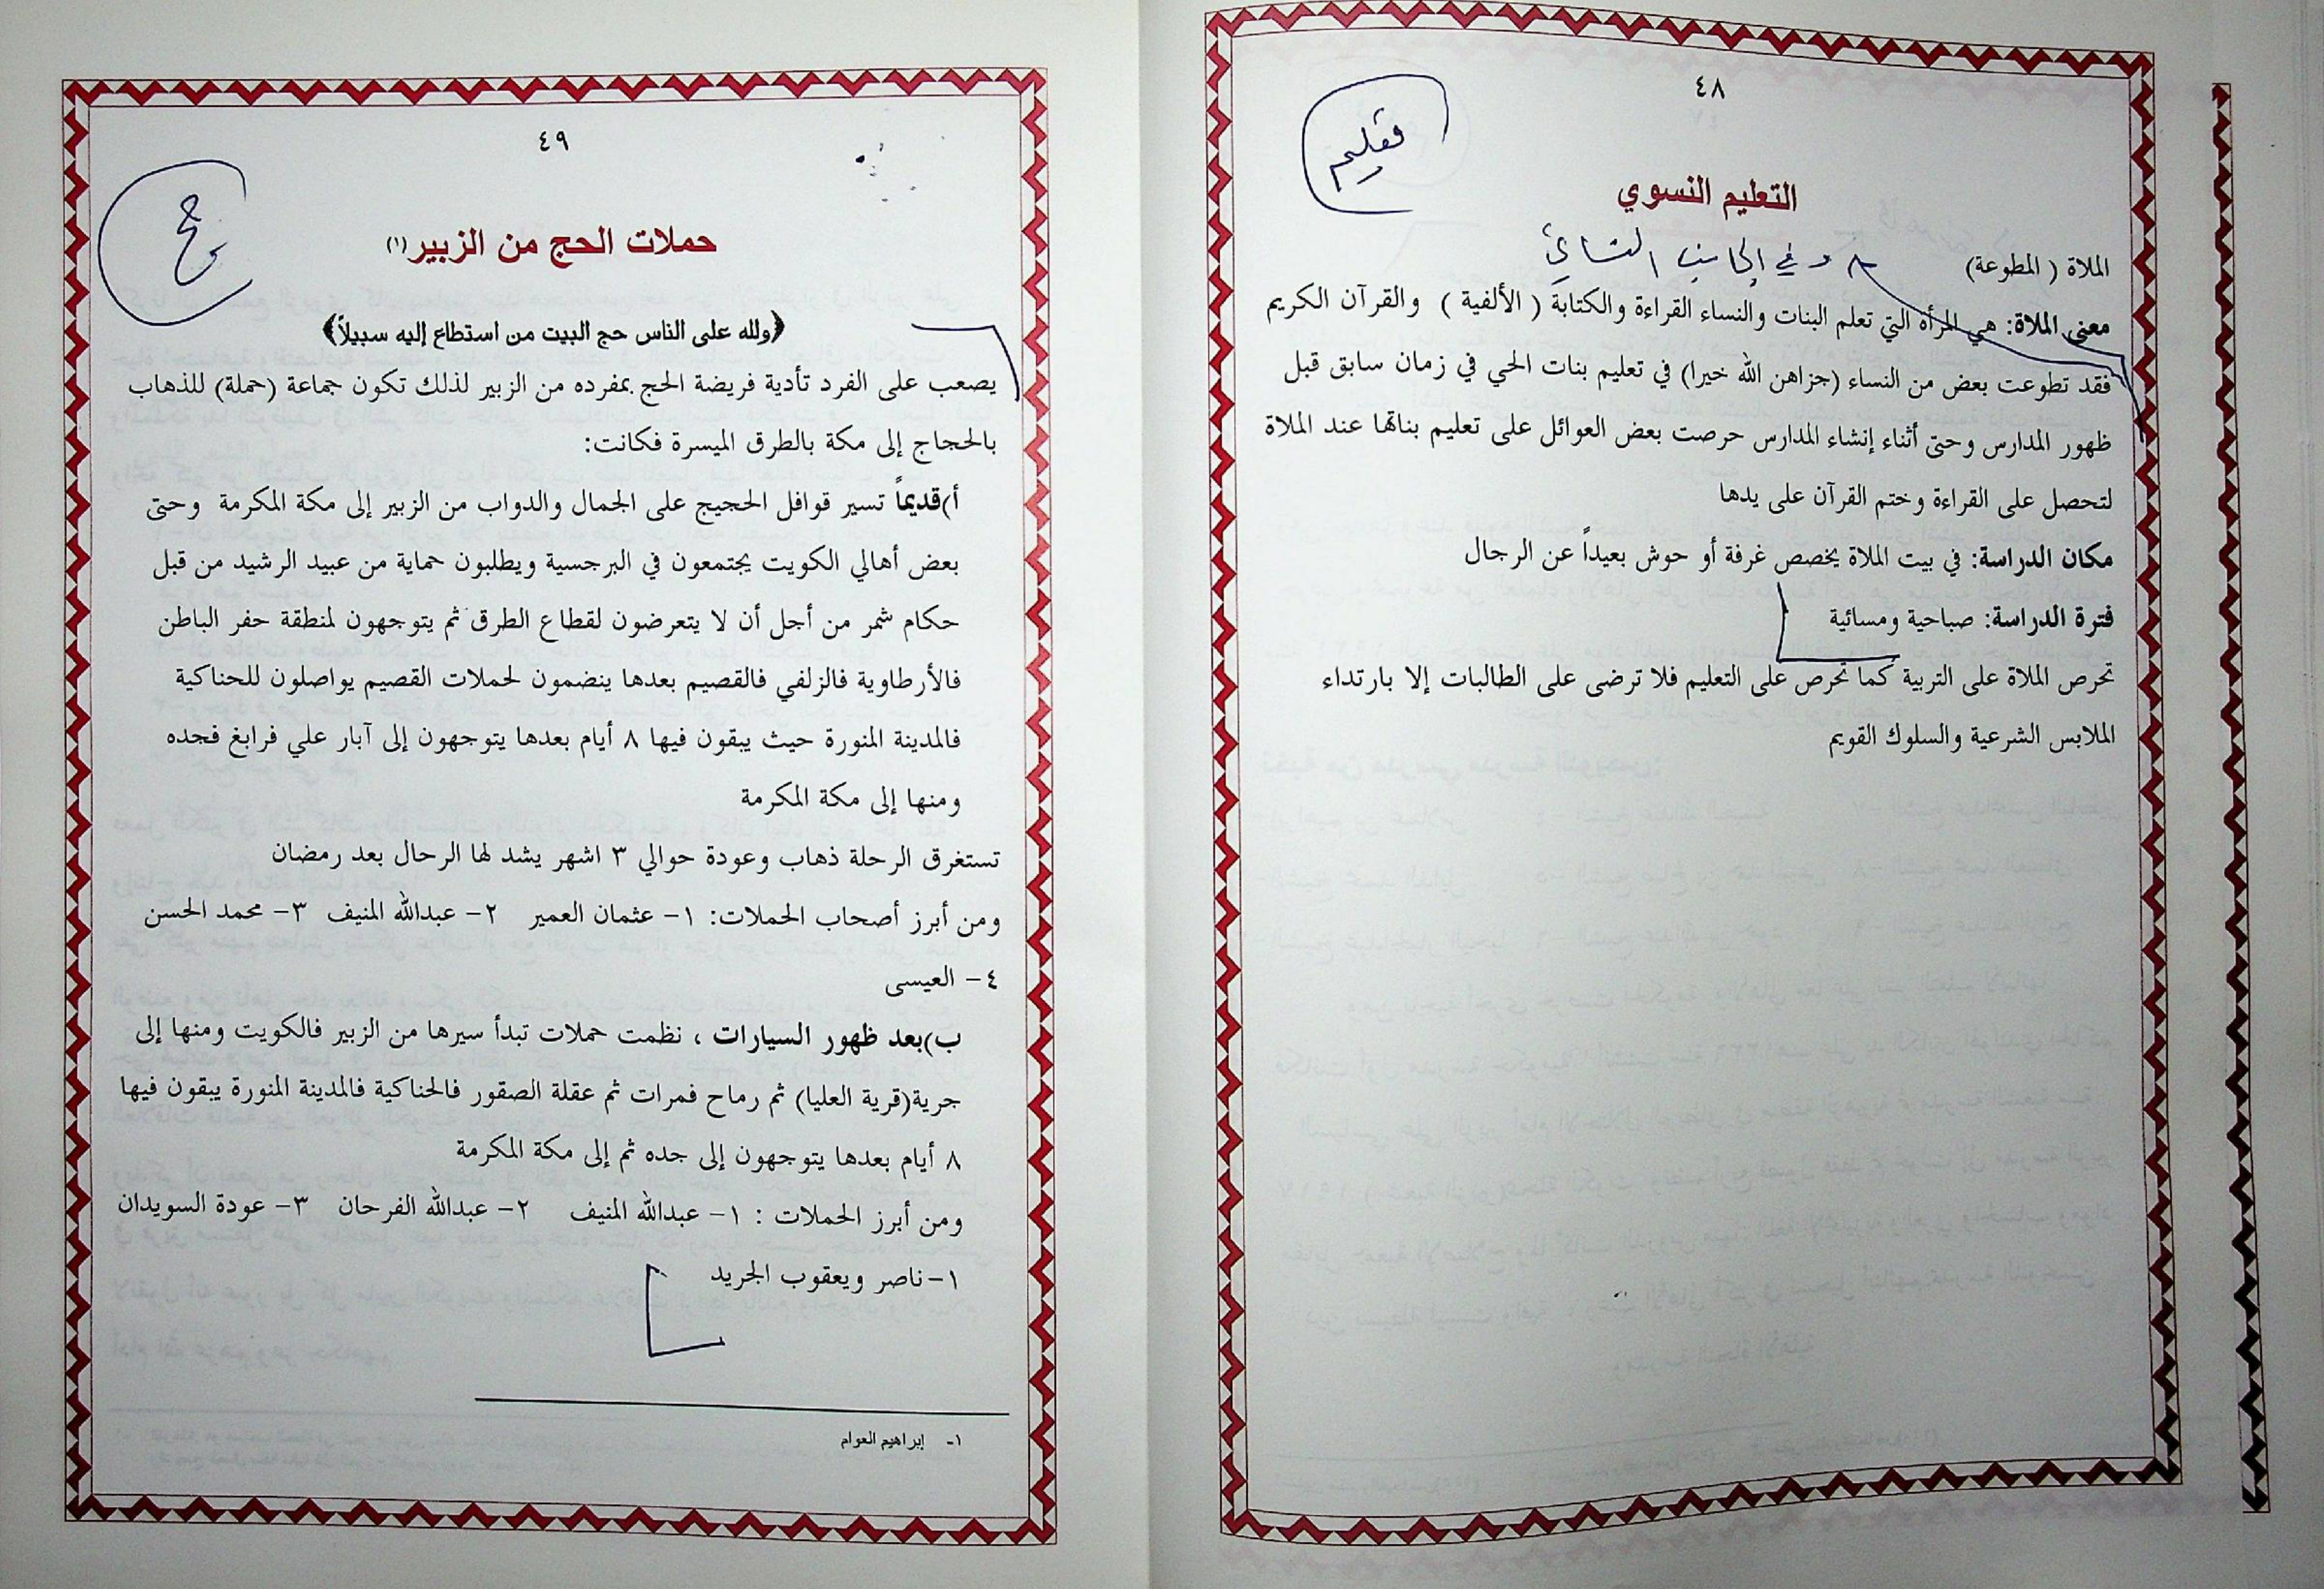 ٤٨
تعليم
التعليم النسوي
الملاة ( المطوعة)
وفي الجانب النسائي
معنى الملاة: هي المرأة التي تعلم البنات والنساء القراءة والكتابة ( الألفية ) والقرآن الكريم
فقد تطوعت بعض من النساء (جزاهن الله خيرا) في تعليم بنات الحي في زمان سابق قبل
ظهور المدارس وحتى أثناء إنشاء المدارس حرصت بعض العوائل على تعليم بناتها عند الملاة
لتحصل على القراءة وختم القرآن على يدها
مكان الدراسة: في بيت الملاة يخصص غرفة أو حوش بعيداً عن الرجال
فترة الدراسة: صباحية ومسائية
تحرص الملاة على التربية كما تحرص على التعليم فلا ترضى على الطالبات إلا بارتداء
الملابس الشرعية والسلوك القويم
٤٩
حج
حملات الحج من الزبير(١)
﴿ولله على الناس حج البيت من استطاع إليه سبيلاً﴾
يصعب على الفرد تأدية فريضة الحج بمفرده من الزبير لذلك تكون جماعة (حملة) للذهاب
بالحجاج إلى مكة بالطرق الميسرة فكانت:
أ)قديماً تسير قوافل الحجيج على الجمال والدواب من الزبير إلى مكة المكرمة وحتى
بعض أهالي الكويت يجتمعون في البرجسية ويطلبون حماية من عبيد الرشيد من قبل
حكام شمر من أجل أن لا يتعرضون لقطاع الطرق ثم يتوجهون لمنطقة حفر الباطن
فالأرطاوية فالزلفي فالقصيم بعدها ينضمون لحملات القصيم يواصلون للحناكية
فالمدينة المنورة حيث يبقون فيها ٨ أيام بعدها يتوجهون إلى آبار علي فرابغ فجده
ومنها إلى مكة المكرمة
تستغرق الرحلة ذهاب وعودة حوالي ٣ اشهر يشد لها الرحال بعد رمضان
ومن أبرز أصحاب الحملات: ١- عثمان العمير ٢- عبدالله المنيف ٣- محمد الحسن
٤- العيسى
ب)بعد ظهور السيارات ، نظمت حملات تبدأ سيرها من الزبير فالكويت ومنها إلى
جرية(قرية العليا) ثم رماح فمرات ثم عقلة الصقور فالحناكية فالمدينة المنورة يبقون فيها
٨ أيام بعدها يتوجهون إلى جده ثم إلى مكة المكرمة
ومن أبرز الحملات : ١- عبدالله المنيف ٢- عبدالله الفرحان ٣- عودة السويدان
١-ناصر ويعقوب الجريد
١- إبراهيم العوام